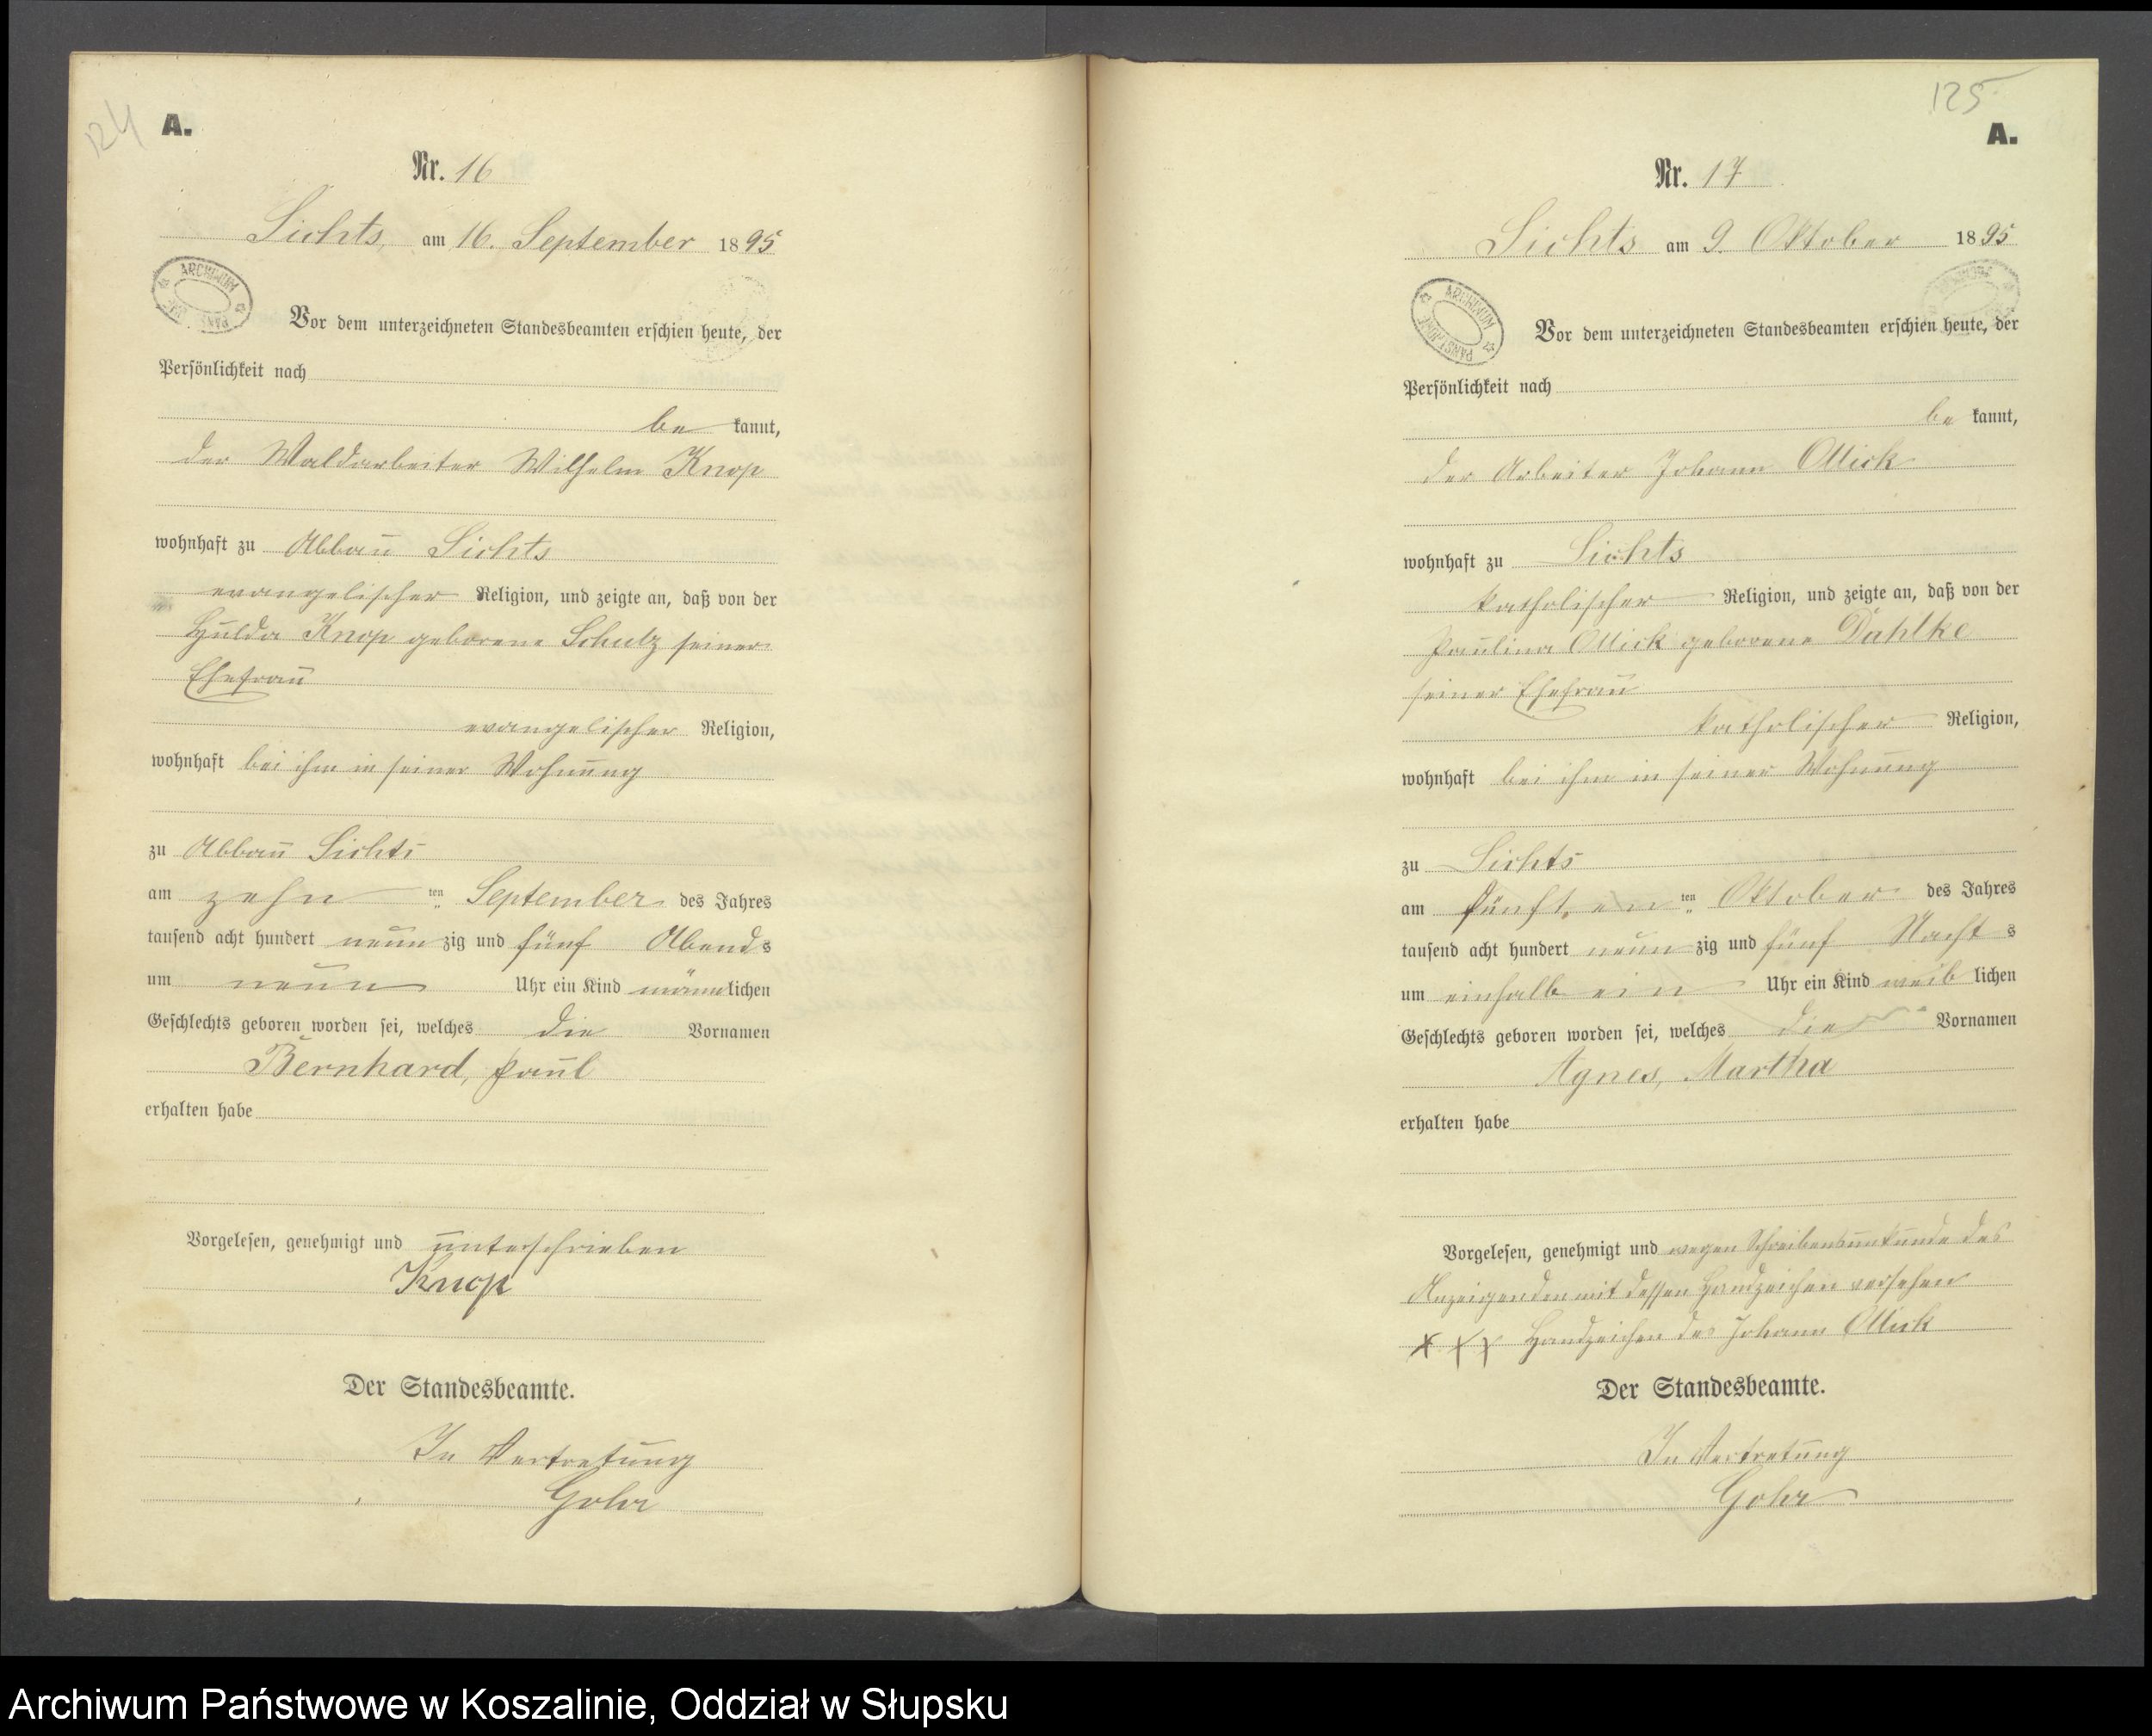 124
A.
Nr. 16
Lichts, am 16. September 1895
ARCHIWUM PAŃSTWOWE
Vor dem unterzeichneten Standesbeamten erschien heute, der
Persönlichkeit nach
be kannt,
der Waldarbeiter Wilhelm Knop
wohnhaft zu Abbau Lichts
evangelischer Religion, und zeigte an, daß von der
Hulda Knop geborene Schulz seiner
Ehefrau
evangelischer Religion,
wohnhaft bei ihm in seiner Wohnung
zu Abbau Lichts
am zehn ten September des Jahres
tausend acht hundert neun zig und fünf Abends
um neun Uhr ein Kind männlichen
Geschlechts geboren worden sei, welches die Vornamen
Bernhard, Paul
erhalten habe
Vorgelesen, genehmigt und unterschrieben
Knop
Der Standesbeamte.
In Vertretung
Gohr
125
A.
Nr. 17
Lichts am 9. Oktober 1895
ARCHIWUM PAŃSTWOWE
Vor dem unterzeichneten Standesbeamten erschien heute, der
Persönlichkeit nach
be kannt,
der Arbeiter Johann Ollick
wohnhaft zu Lichts
katholischer Religion, und zeigte an, daß von der
Paulina Ollick geborene Dahlke
seiner Ehefrau
katholischer Religion,
wohnhaft bei ihm in seiner Wohnung
zu Lichts
am fünften ten Oktober des Jahres
tausend acht hundert neun zig und fünf Nachts
um einhalb ein Uhr ein Kind weib lichen
Geschlechts geboren worden sei, welches die Vornamen
Agnes, Martha
erhalten habe
Vorgelesen, genehmigt und wegen Schreibensunkunde des
Anzeigenden mit dessen Handzeichen versehen
+ + + Handzeichen des Johann Ollick
Der Standesbeamte.
In Vertretung
Gohr
Archiwum Państwowe w Koszalinie, Oddział w Słupsku